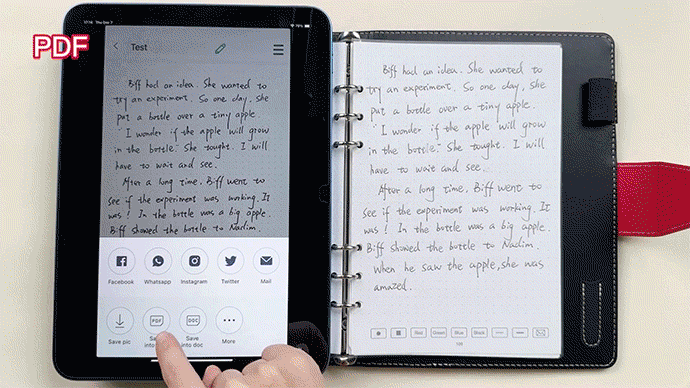 PDF
17:16 Thu Dec 7
Test
Biff had an idea. She wanted to
try an experiment. So one day, she
put a bottle over a tiny apple.
"I wonder if the apple will grow
in the bottle." She tought. I will
have to wait and see.
After a long time, Biff went to
see if the experiment was working. It
was! In the bottle was a big apple.
Biff showed the bottle to Nadim.
Facebook Whatsapp Instagram Twitter Mail
PDF DOC
Save pic Save into doc More
Biff had an idea. She wanted to
try an experiment. So one day, she
put a bottle over a tiny apple.
"I wonder if the apple will grow
in the bottle." She tought. I will
have to wait and see.
After a long time, Biff went to
see if the experiment was working. It
was! In the bottle was a big apple.
Biff showed the bottle to Nadim.
When he saw the apple, she was
amazed.
Red Green Blue Black